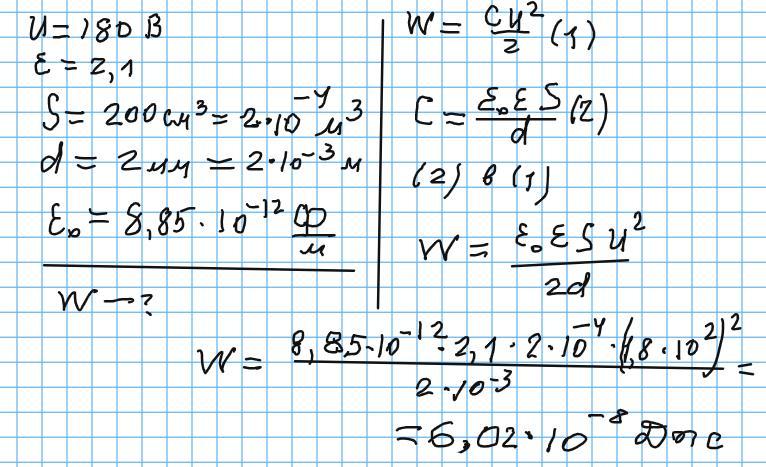 U = 180 В
ε = 2,1
S = 200 см³ = 2·10⁻⁴ м³
d = 2 мм = 2·10⁻³ м
ε₀ = 8,85·10⁻¹² Ф/м
W — ?
W = CU²/2 (1)
C = ε₀ε S/d (2)
(2) в (1)
W = ε₀ε S U²/2d
W = 8,85·10⁻¹²·2,1·2·10⁻⁴·(1,8·10²)²/2·10⁻³ =
= 6,02·10⁻⁸ Дж